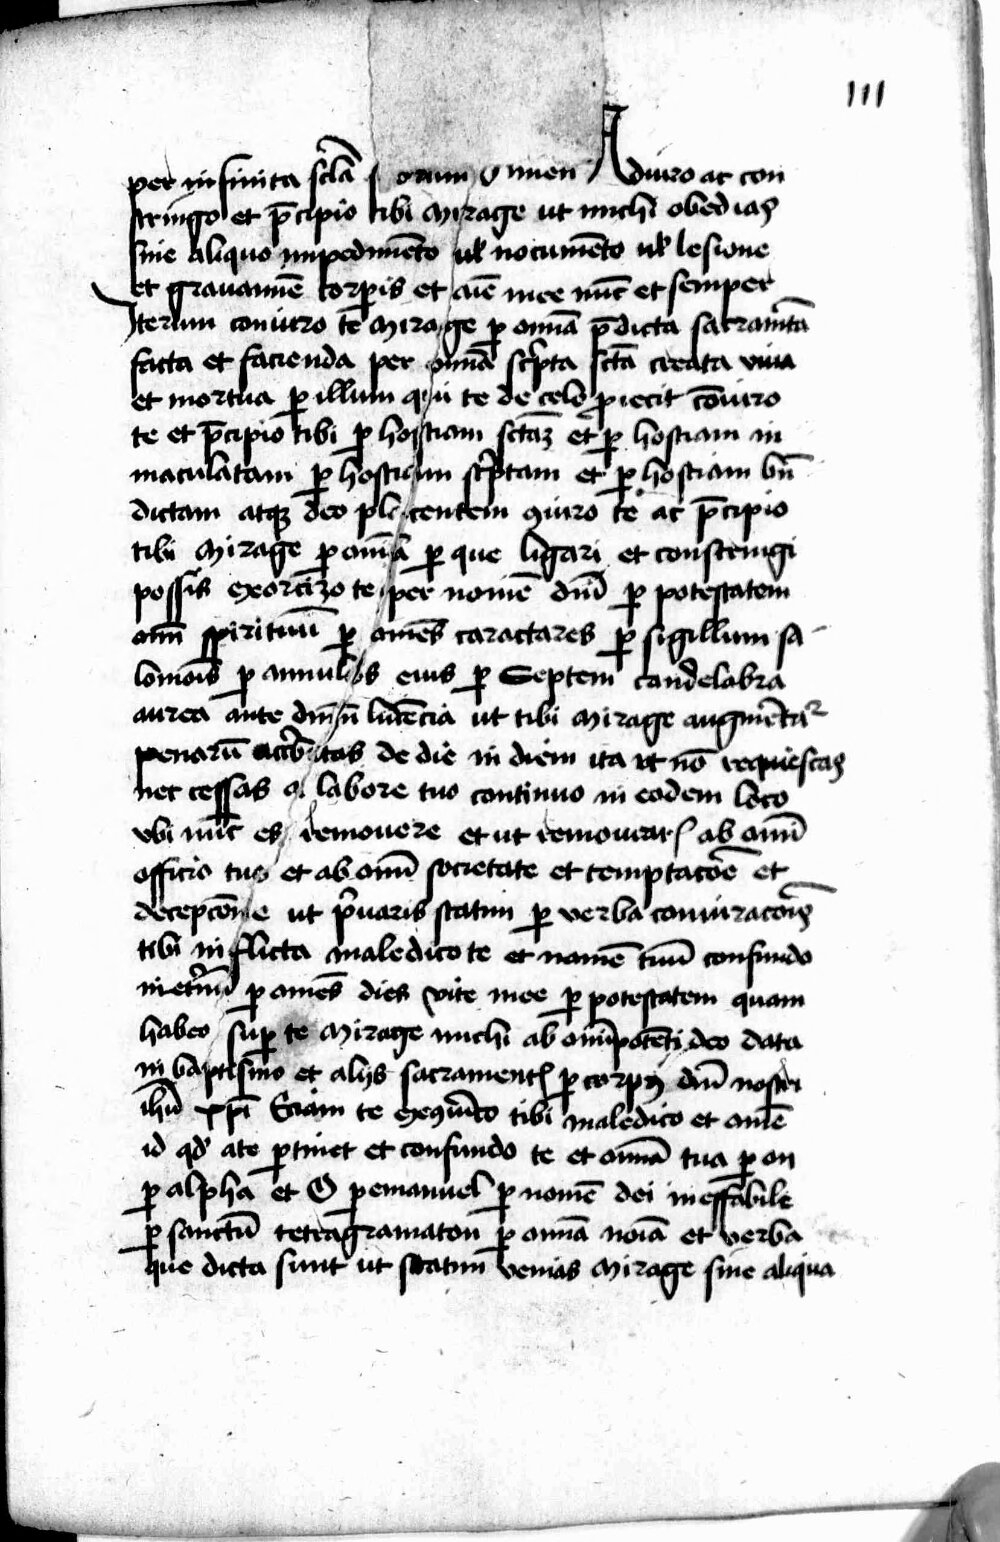 111
per in finita scła Amen Adiuro ac con
stringo et p̄cipio tibi Mirage ut michi obedias
sine aliquo impedimēto ul' nocumēto ul' lesione
et grauamīe corp̱is et aīe mee nūc et semper
Iterum coniuro te Mirage p̱ om̄ia p̄dicta sacramēta
facta et facienda per om̄ia sc̄ripta sc̄ta creata viua
et mortua p̱ illum qui te de celo p̱iecit cōiuro
te et p̄cipio tibi p̱ hostiam sc̄tāꝫ et p̱ hostiam in
maculatam p̱ hostiam sc̄riptam et p̱ hostiam bn̄
dictam atqꝫ deo placentem ꝯiuro te ac p̄cipio
tibi Mirage p̱ om̄ia p̱ que ligari et constringi
possis exorcizo te per nomē dn̄i p̱ potestatem
om̄ spirituū p̱ om̄es caractares p̱ sigillum sa
lomōis p̱ annulos eius p̱ Septem candelabra
aurea ante dn̄m lucēcia ut tibi Mirage augmētar̄
penarū acerbitas de die in diem ita ut nō requiescas
nec cessas a labore tuo continuo in eodem loco
vbi nūc es remouere et ut remouearꝭ ab om̄i
officio tuo et ab om̄i societate et temptacōe et
decepcōne ut p̄uaris statim p̱ verba coniuracōis
tibi in flicta maledico te et nomē tuū confundo
in et̄nū p̱ om̄es dies vite mee p̱ potestatem quam
habeo sup̱ te Mirage michi ab om̄ipotēti deo data
in baptismo et alijs sacramentꝭ p̱ corpꝰ dn̄i nostri
ih̄u xp̄i Eciam te tibi maledico et om̄e
id qd' ate p̱tinet et confundo te et om̄ia tua p̱ on
p̱ alpha et O p̱ emanuel p̱ nomē dei ineffabile
p̱ sanctū tetragramaton p̱ om̄ia nōia et verba
que dicta sunt ut statim venias Mirage sine aliqua